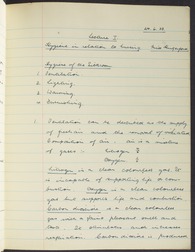 Lecture I
Hygiene in relation to Nursing
Hygiene of the Sickroom
1. Ventilation
2. Lighting
3. Warming
4.
1. Ventilation can be described as the supply
of and the removal of
Composition of air air is a mixture
of gases - Nitrogen
Oxygen
Nitrogen is a clear colourless gas, it
is incapable of supporting life or com-
bustion. Oxygen is a clear colourless
gas but supports life and combustion
Carbon dioxide is a clear colourless
gas with a faint pleasant smell and
taste. It stimulates and increases
respiration. Carbon dioxide is produced